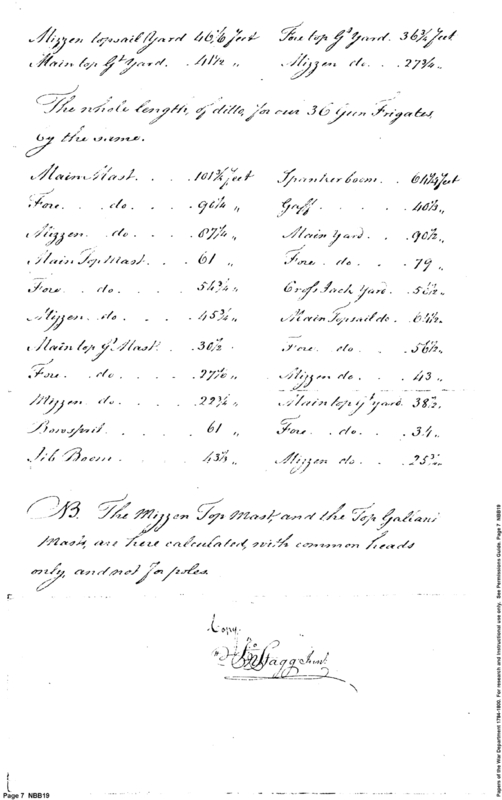 Mizzen topsail Yard 46 1/6 feet Fore top Gt Yard. 36 3/4 feet
Main top Gt Yard. . 41 1/2 „ Mizzen do. . . 27 3/4 „
The whole length, of ditto, for our 36 Gun Frigates,
by the same.
Main Mast. . . feet Spanker boom. . feet
Fore. . do. . . „ Gaff. . . . 40 1/2 „
Mizzen. do. . . 87 1/4 „ Main Yard. . . 90 1/2 „
Main Top Mast. . . 61 „ Fore. do. . . 79 „
Fore. . do. . . 54 3/4 „ Cross Jack Yard. .
Mizzen do. . . 45 3/4 „ Main Topsail do. .
Main top Gt Mast. . 30 1/2 „ Fore. do. . . 56 1/2 „
Fore. . do. . . Mizzen do. . . 43 „
Mizzen do. . . 22 3/4 „ Main top Gt yard. 38 1/2 „
Bowsprit. . . . 61 „ Fore. do. . . 34 „
Jib Boom. . . . 43 1/2 „ Mizzen do. . .
NB. The Mizzen Top Mast, and the Top Gallant
Masts, are here calculated, with common heads
only, and not for poles.
Copy.
Jno Stagg Junr
Page 7 NBB19
Papers of the War Department 1784-1800. For research and instructional use only. See Permissions Guide. Page 7 NBB19